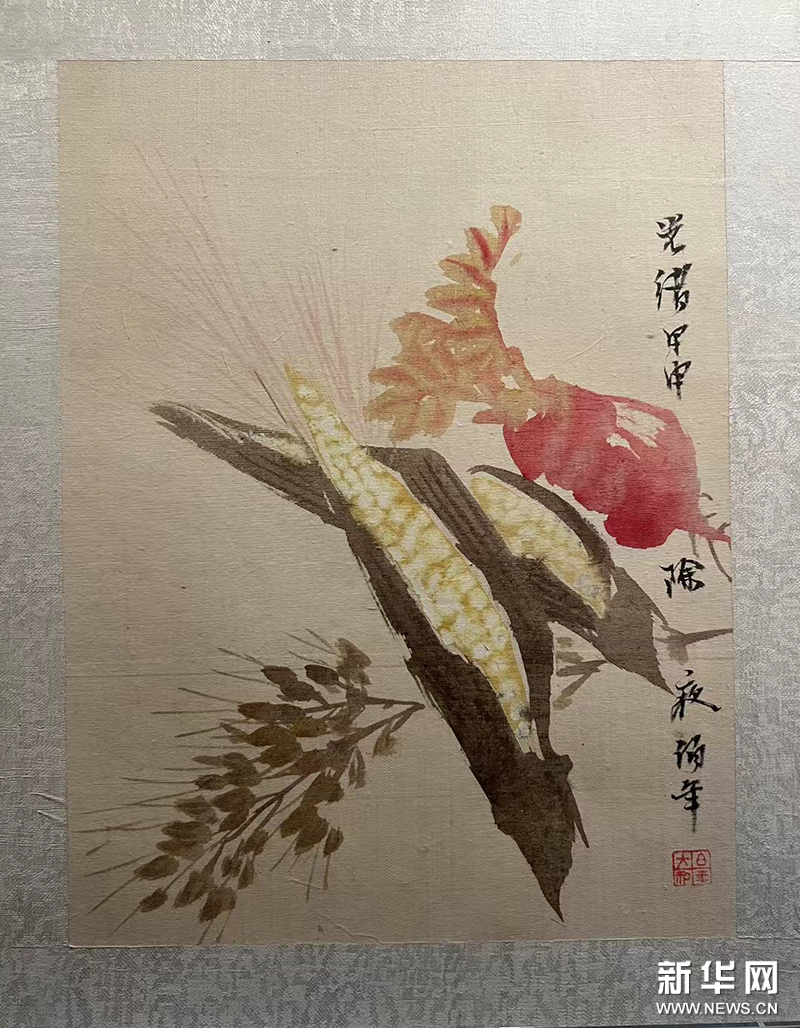 光绪甲申除夜伯年
新华网
WWW.NEWS.CN